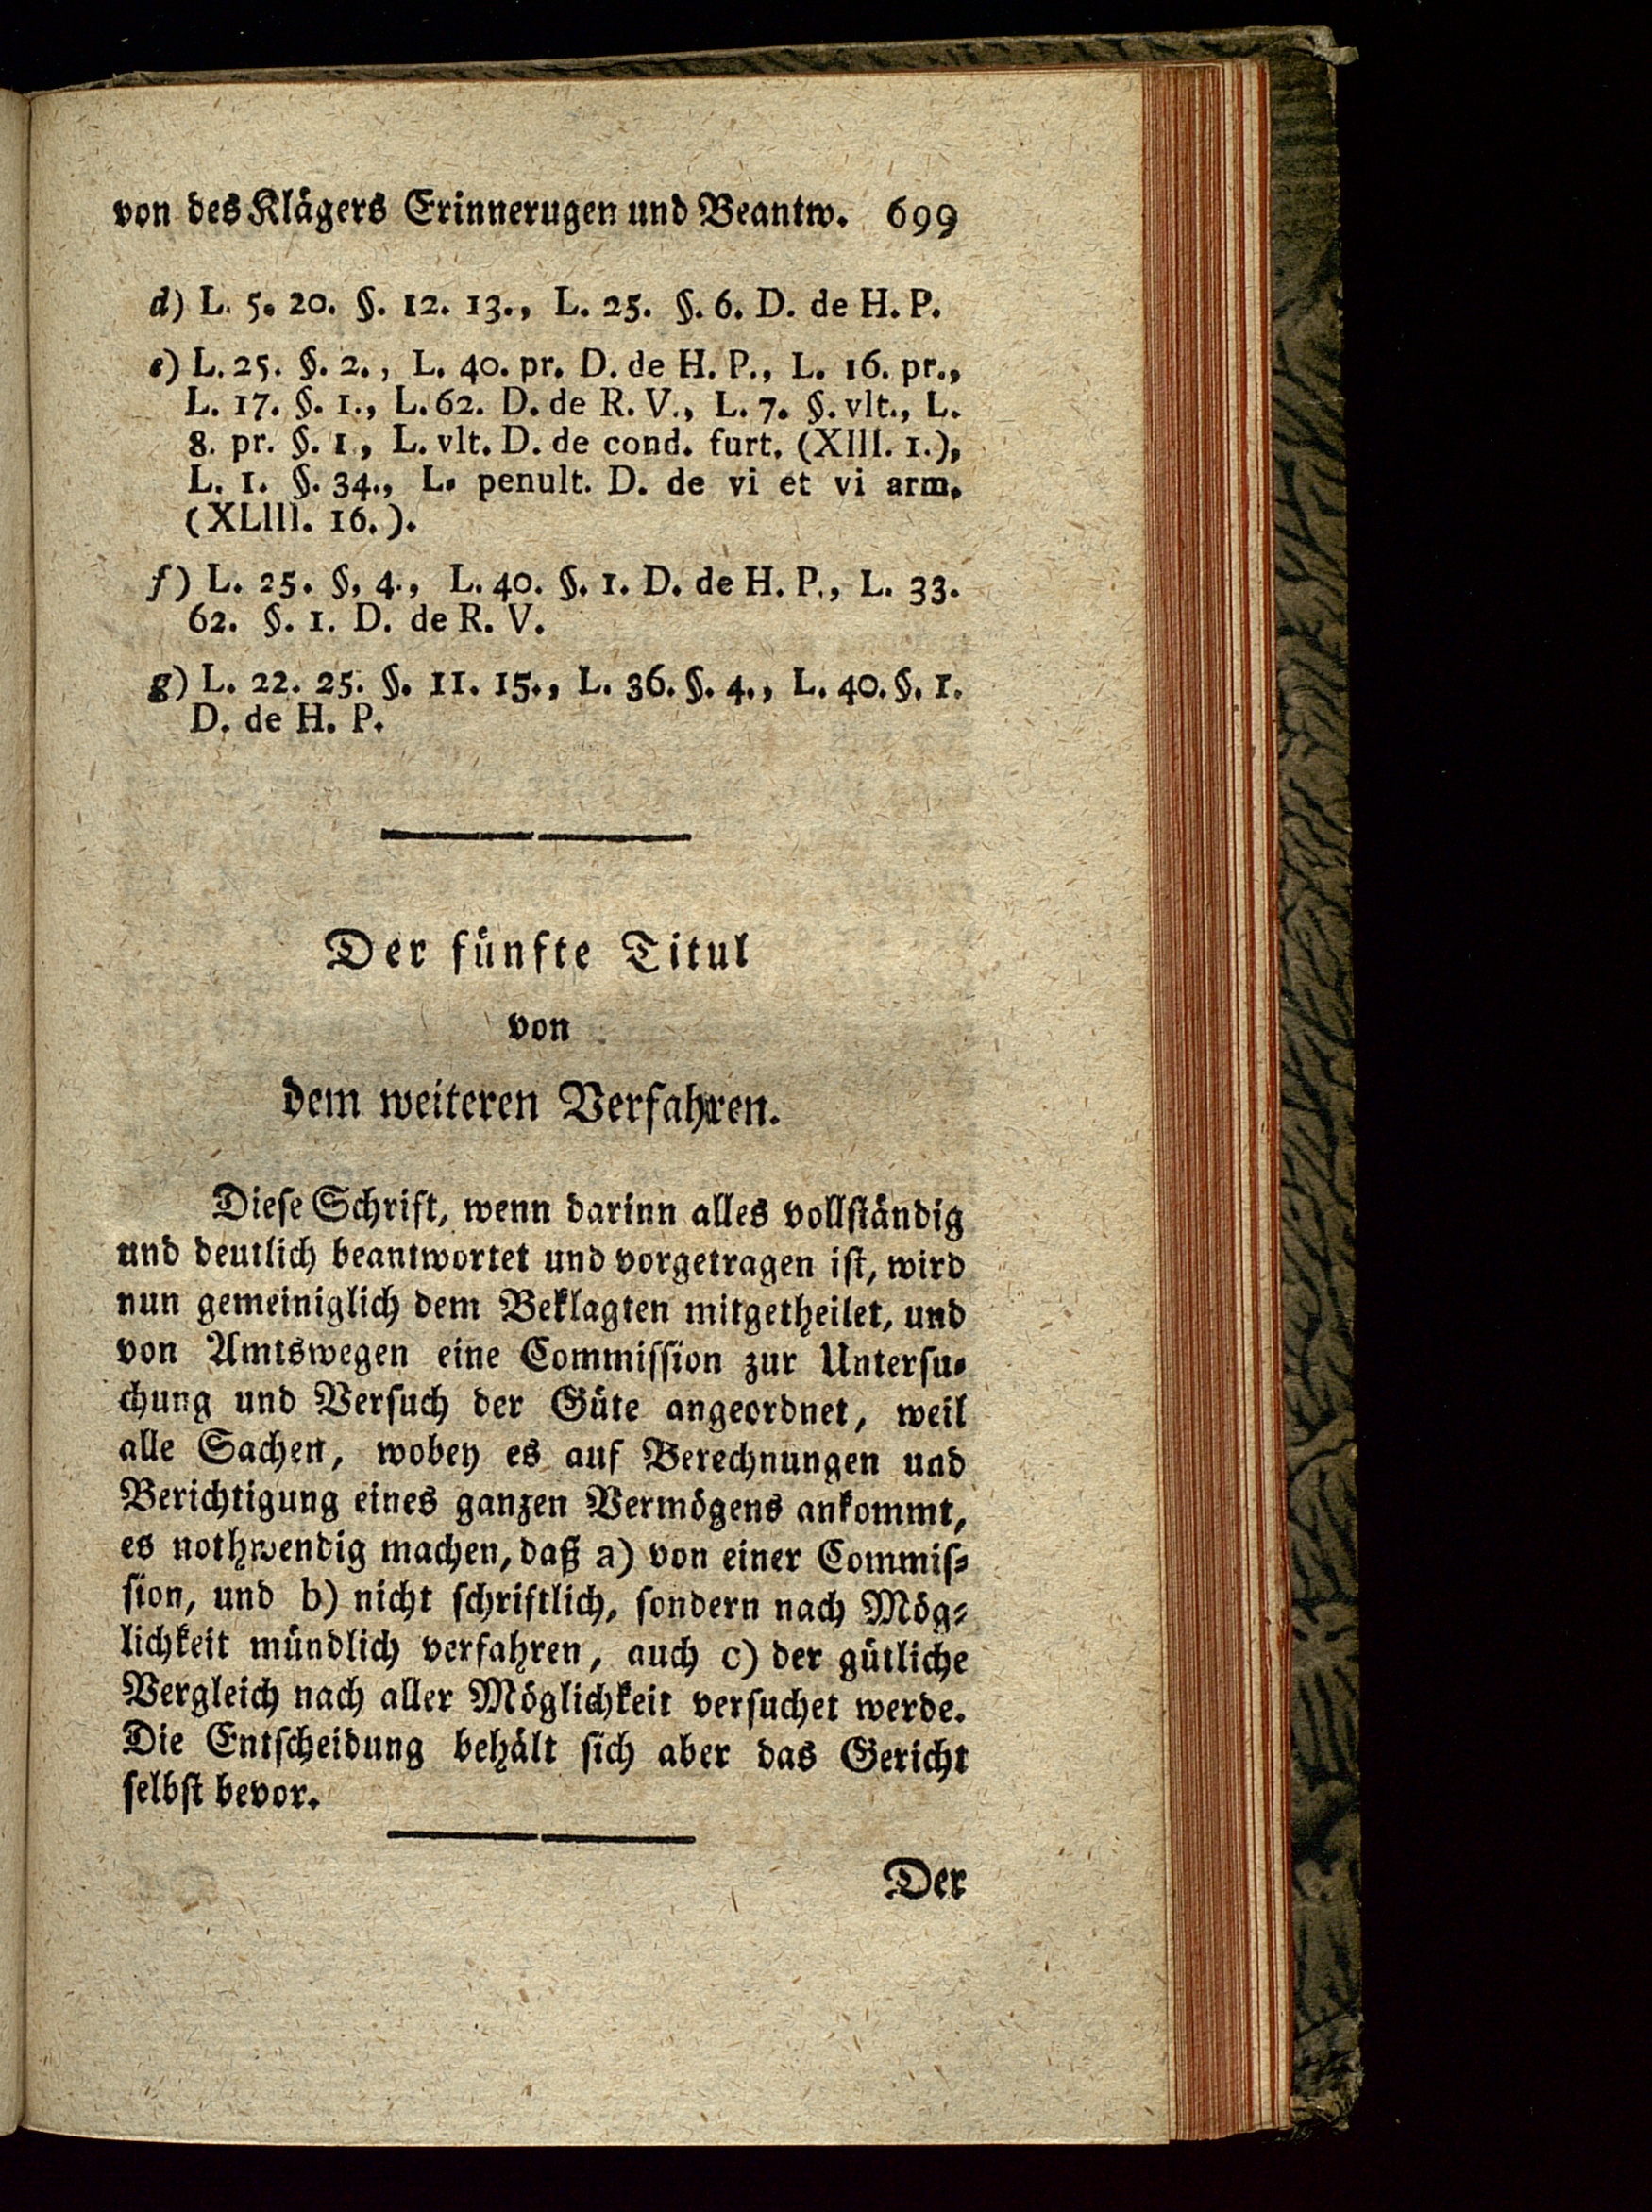 von des Klägers Erinnerugen und Beantw. 699
d) L. 5. 20. §. 12. 13., L. 25. §. 6. D. de H. P.
e) L. 25. §. 2., L. 40. pr. D. de H. P., L. 16. pr.,
L. 17. §. 1., L. 62. D. de R. V., L. 7. §. vlt., L.
8. pr. §. 1., L. vlt. D. de cond. furt. (XIII. 1.),
L. 1. §. 34., L. penult. D. de vi et vi arm.
(XLIII. 16.).
f) L. 25. §. 4., L. 40. §. 1. D. de H. P., L. 33.
62. §. 1. D. de R. V.
g) L. 22. 25. §. 11. 15., L. 36. §. 4., L. 40. §. 1.
D. de H. P.
Der fünfte Titul
von
dem weiteren Verfahren.
Diese Schrift, wenn darinn alles vollständig
und deutlich beantwortet und vorgetragen ist, wird
nun gemeiniglich dem Beklagten mitgetheilet, und
von Amtswegen eine Commission zur Untersu-
chung und Versuch der Güte angeordnet, weil
alle Sachen, wobey es auf Berechnungen und
Berichtigung eines ganzen Vermögens ankommt,
es nothwendig machen, daß a) von einer Commis-
sion, und b) nicht schriftlich, sondern nach Mög-
lichkeit mündlich verfahren, auch c) der gütliche
Vergleich nach aller Möglichkeit versuchet werde.
Die Entscheidung behält sich aber das Gericht
selbst bevor.
Der